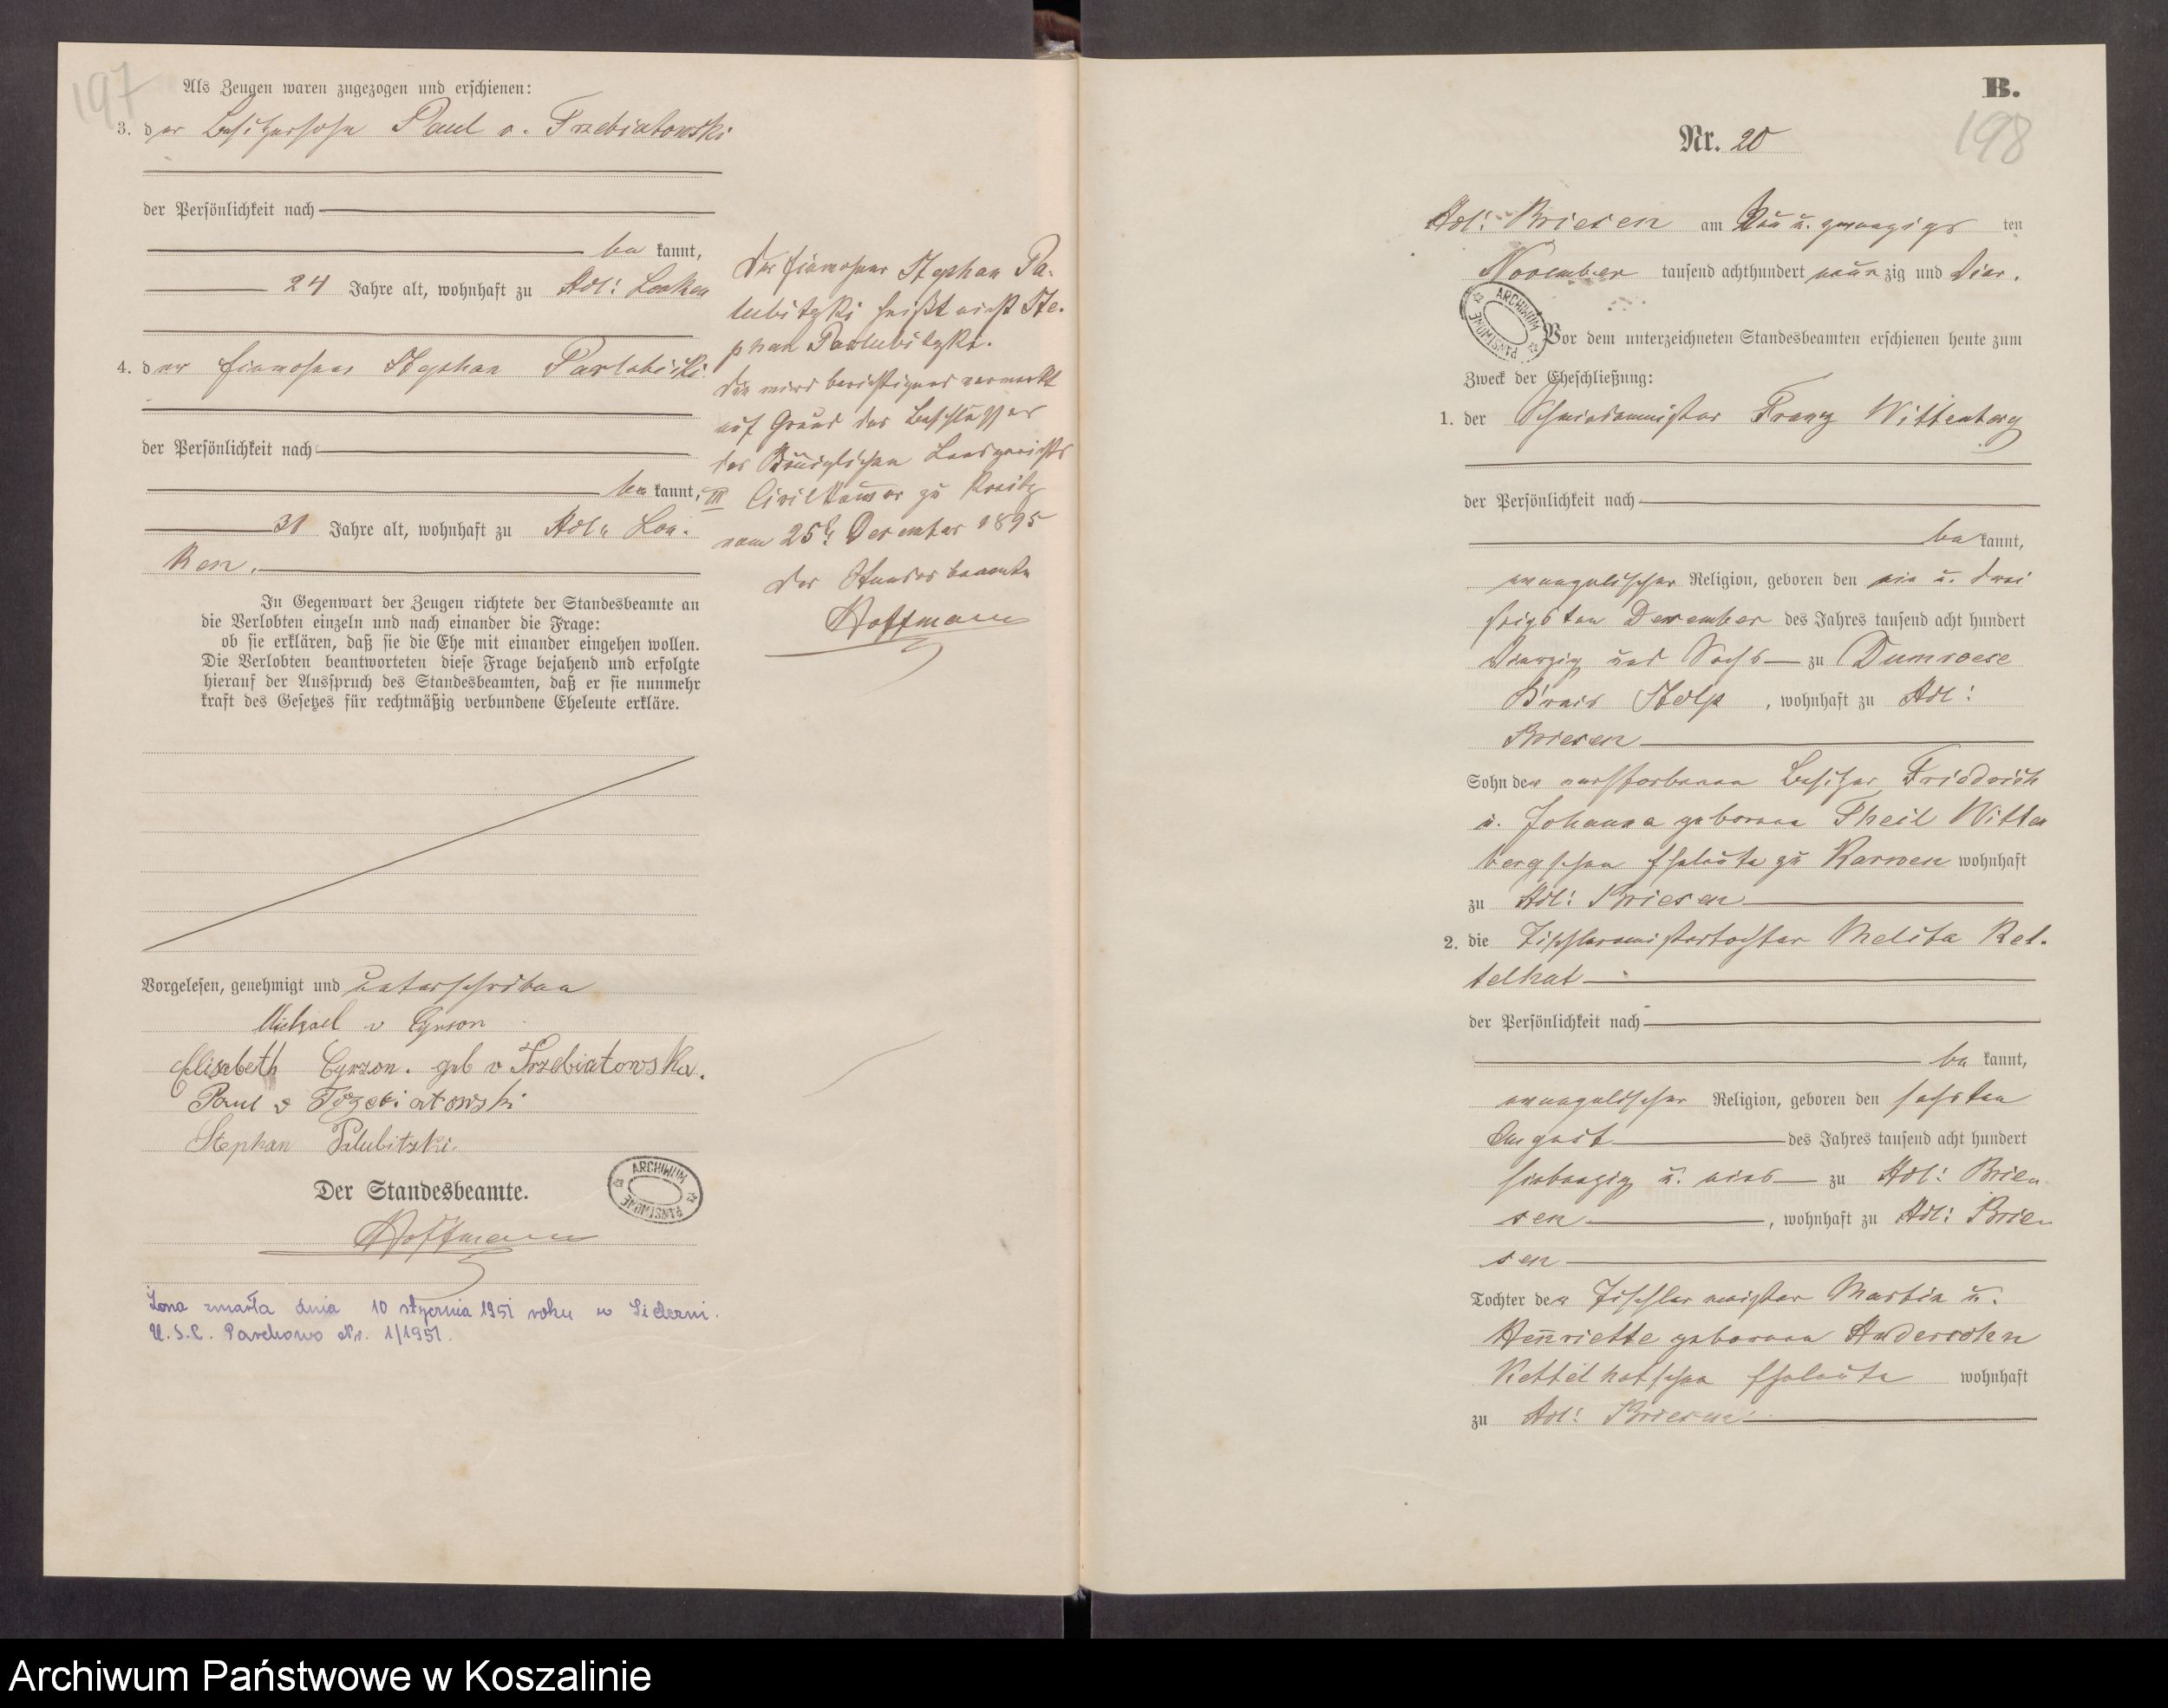 197
Als Zeugen waren zugezogen und erschienen:
3. der Besitzersohn Paul v. Trzebiatowski
der Persönlichkeit nach
be kannt,
24 Jahre alt, wohnhaft zu Adl: Lonken
4. der Einwohner Stephan
der Persönlichkeit nach
be kannt,
31 Jahre alt, wohnhaft zu Adl: Lon-
ken.
In Gegenwart der Zeugen richtete der Standesbeamte an
die Verlobten einzeln und nach einander die Frage:
ob sie erklären, daß sie die Ehe mit einander eingehen wollen.
Die Verlobten beantworteten diese Frage bejahend und erfolgte
hierauf der Ausspruch des Standesbeamten, daß er sie nunmehr
kraft des Gesetzes für rechtmäßig verbundene Eheleute erkläre.
Vorgelesen, genehmigt und unterschrieben
Michael v Cyrson
Elisabeth Cyrzon. geb v Trzebiatowska.
Paul v Trzebiatowski
Stephan Palubitzki.
Der Standesbeamte.
Hoffmann
ARCHIWUM PAŃSTWOWE
Żona zmarła dnia 10 stycznia 1951 roku w
U.S.C. Parchowo Nr. 1/1951.
Der Einwohner Stephan Pa-
lubitzki heißt nicht Ste-
phan
Dies wird berichtigend vermerkt
auf Grund des Beschlusses
des Königlichen Landgerichts
III Civilkammer zu Konitz
vom 25t. Dezember 1895
Der Standesbeamte
Hoffmann
B.
198
Nr. 20
Adl: Briesen am Neun u. zwanzigs ten
November tausend achthundert neun zig und Vier.
ARCHIWUM PAŃSTWOWE
Vor dem unterzeichneten Standesbeamten erschienen heute zum
Zweck der Eheschließung:
1. der Schmiedemeister Franz Wittenberg
der Persönlichkeit nach
be kannt,
evangelischer Religion, geboren den ein u. drei
ßigsten Dezember des Jahres tausend acht hundert
vierzig und Sechs zu Dumroese
Kreis Stolp, wohnhaft zu Adl:
Briesen
Sohn der verstorbenen Besitzer Friedrich
u. Johanna geborene Theil Witten
bergschen Eheleute zu Karwen wohnhaft
zu Adl: Briesen
2. die Tischlermeistertochter Melita Ket-
telhut
der Persönlichkeit nach
be kannt,
evangelischer Religion, geboren den sechsten
August des Jahres tausend acht hundert
siebenzig u. eins zu Adl: Brie-
sen, wohnhaft zu Adl: Brie-
sen
Tochter der Tischlermeister Martin u.
Henriette geborene Andersohn
Kettelhutschen Eheleute wohnhaft
zu Adl: Briesen
Archiwum Państwowe w Koszalinie